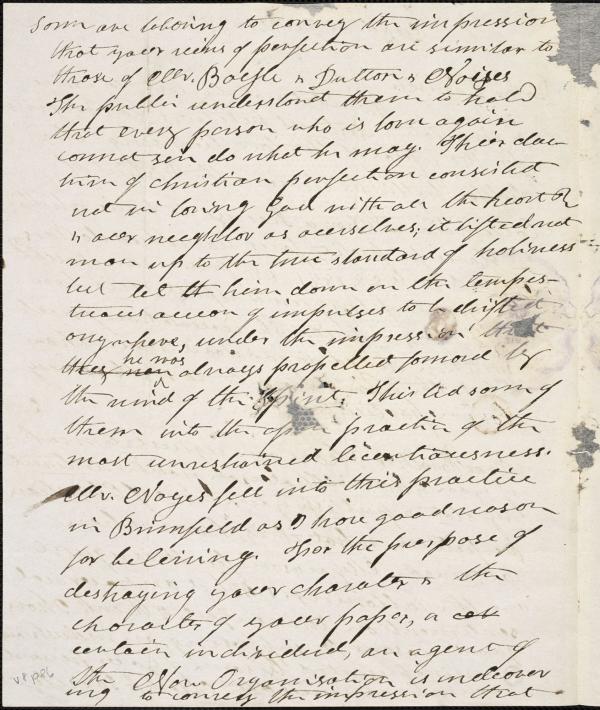 Some are laboring to convey the impression
that your views of perfection are similar to
those of Mr. Boyle & Dutton & Noyes
The public understood them to hold
that every person who is born again
cannot sin do what he may. Their doc-
trine of christian perfection consisted
not in loving God with all the heart &
& our neighbor as ourselves; it lifted not
man up to the true standard of holiness
but let him down on the tempes-
tuous ocean of impulses to be drifted
anywhere, under the impression that
he was
they always propelled forward by
the wind of the Spirit. This led some of
them into the open practice of the
most unrestrained licentiousness.
Mr. Noyes fell into this practice
in Brimfield as I have good reason
for believing. For the purpose of
destroying your character & the
character of your paper, a
certain individual, an agent of
the New Organization is endeavor
ing to convey the impression that